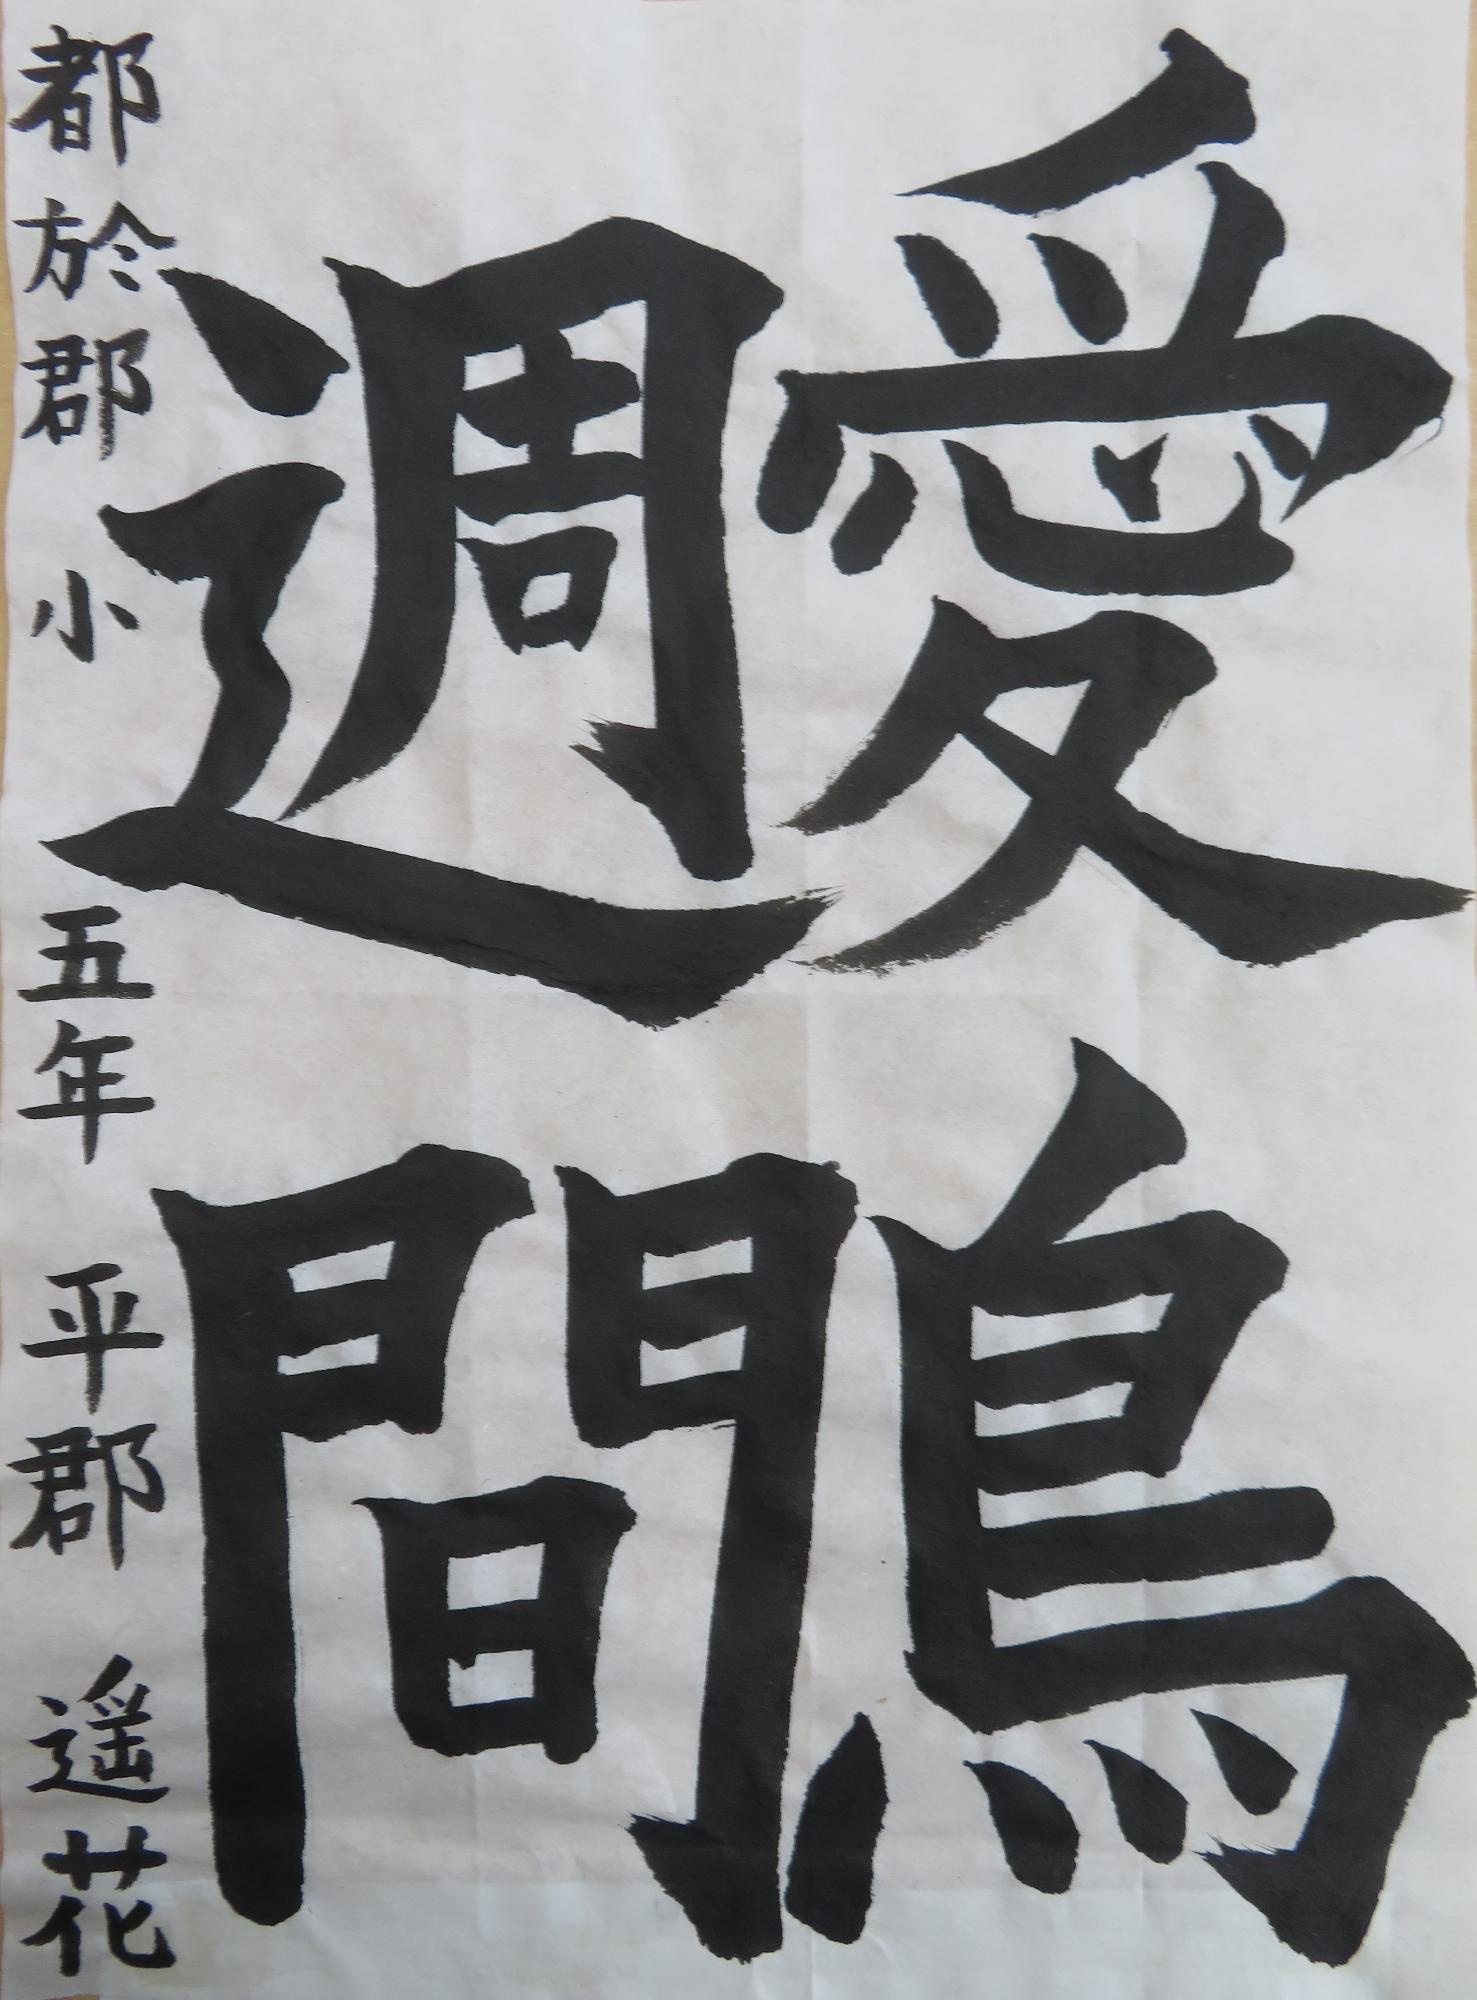 愛鳥
週間
都於郡小 五年 平郡 遥花